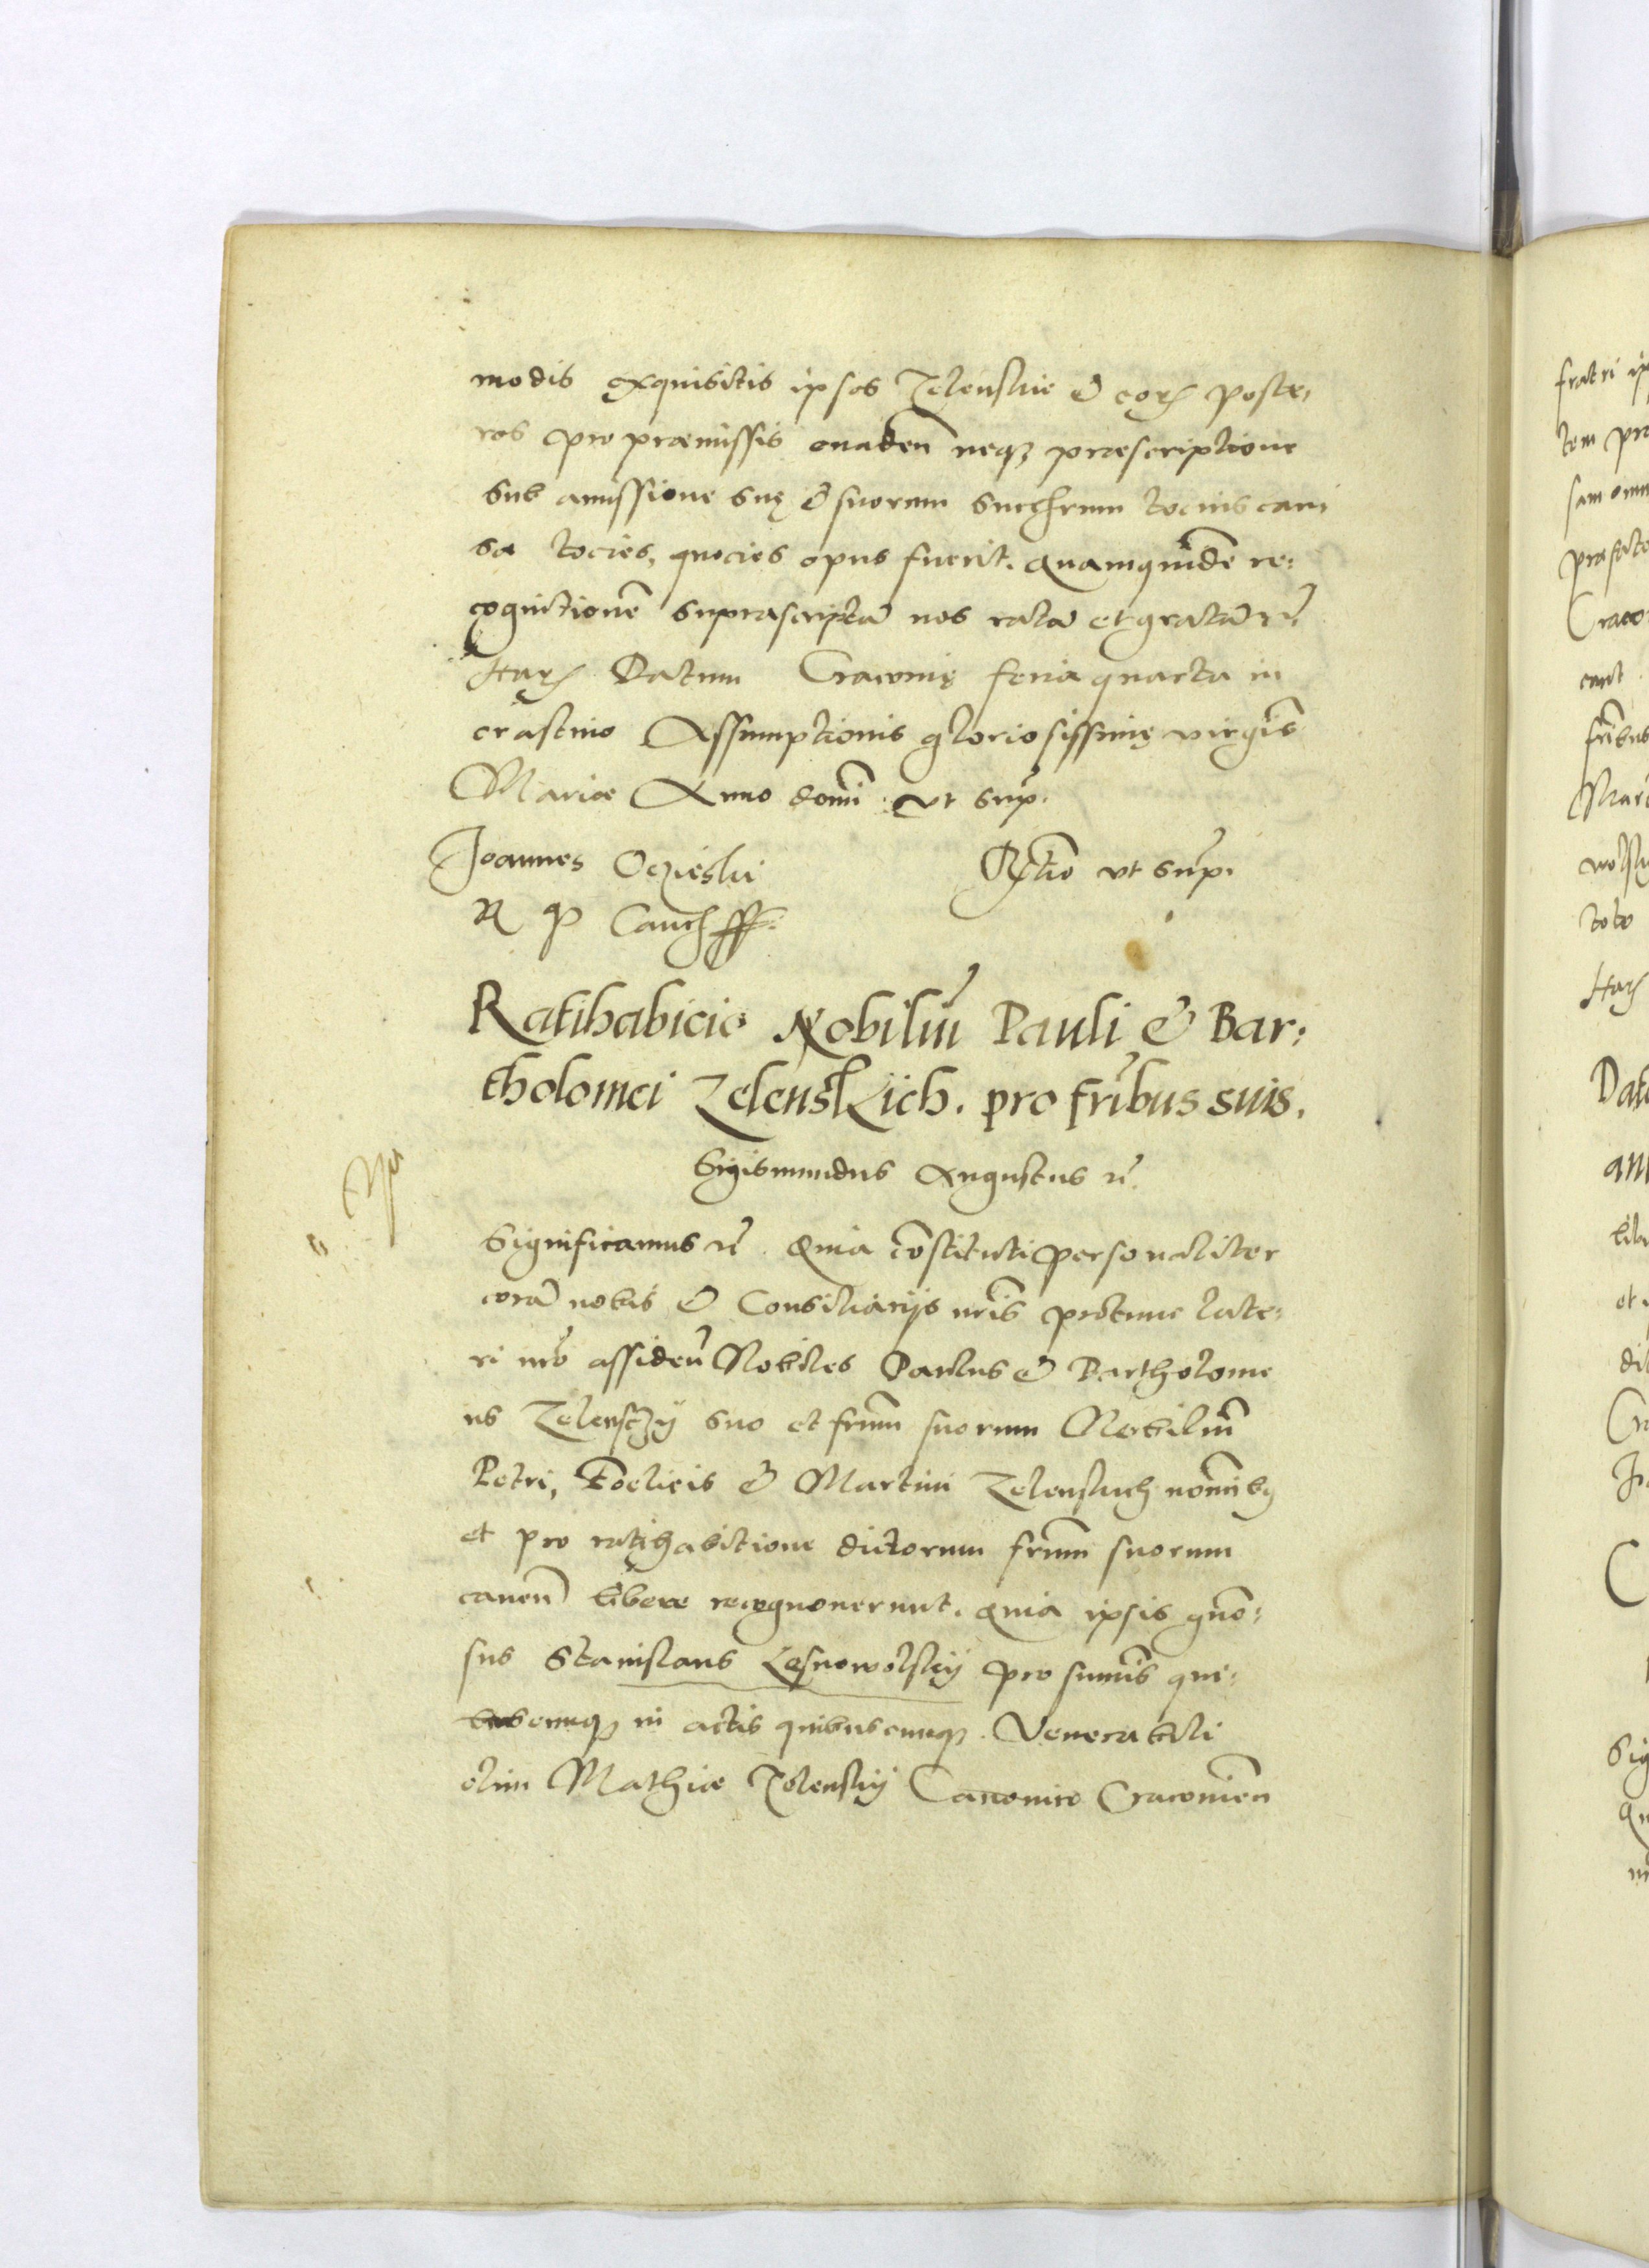 modis exquisitis ipsos Zelenskie & eorum poste:
ros pro præmissis evaden neque præscriptione
sub amissione suę & suorum succesrum tocius cau
sa tocies, quocies opus fuerit. Quamquidē re:
cognitionē suprascriptā nos ratā et gratā rc̃
Harum Datum Cracovię feria quarta in
crastino Assumptionis gloriosissimę virgīs
Mariæ Anno domī ut sup.
Joannes Oczieski
R P Cancss.
Rtio ut sup.
Ratihabicio Nobiliū Pauli & Bar:
tholomei Zelenskich. pro frībus suis.
Sigismundus Augustus rc̃.
Significamus rc̃. Quia cōstituti personaliter
corā nobis & Consiliariis nrīs protunc late:
ri nrō assiden̄ Nobiles Paulus & Bartholome
us Zelensczy suo et frūm suorum Nobiliū
Petri, Foelicis & Martini Zelenskich nomībus
et pro ratihabitione dictorum frūm suorum
caven̄ libere recognoverunt. Quia ipsis gnō:
sus Stanislaus Lesnowolsky pro sum̄is qui:
cumque in actis quibuscunque. Venerabili
olim Mathiæ Zelensky Canonico Cracovien̄